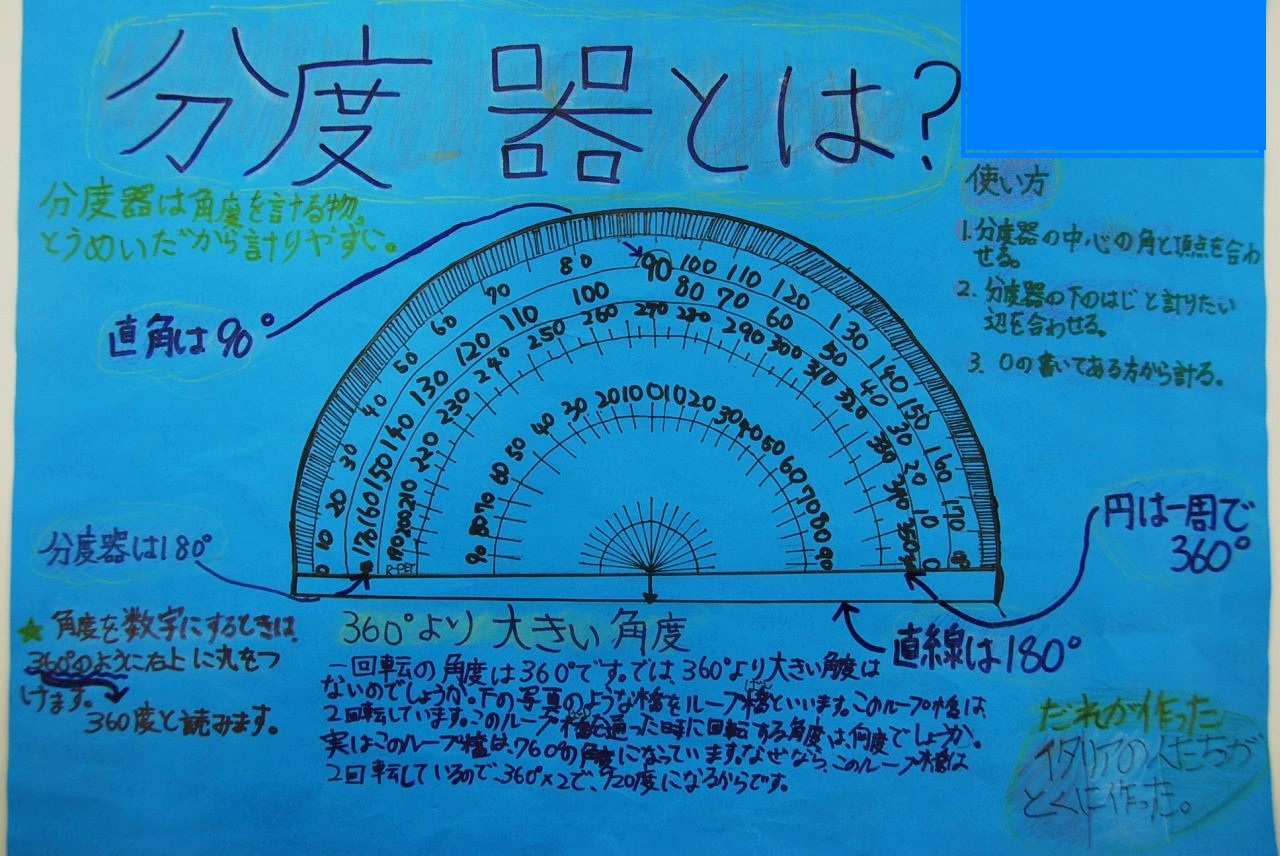 分度器とは?
分度器は角度を計る物。
とうめいだから計りやすい。
直角は90°
使い方
1.分度器の中心の角と頂点を合わ
せる。
2.分度器の下のはじと計りたい
辺を合わせる。
3.0の書いてある方から計る。
0 10 20 30 40 50 60 70 80 90 100 110 120 130 140 150 160 170
170 160 150 140 130 120 110 100 80 70 60 50 40 30 20 10 0
190 200 210 220 230 240 250 260 270 280 290 300 310 320 330 340 350
90 80 70 60 50 40 30 20 10 0 10 20 30 40 50 60 70 80 90
分度器は180°
円は一周で
360°
直線は180°
★角度を数字にするときは、
360°のように右上に丸をつ
けます。
360度と読みます。
360°より大きい角度
一回転の角度は360°です。では、360°より大きい角度は
ないのでしょうか。下の写真のような橋をループ橋といいます。このループ橋は、
2回転しています。このループ橋を通った時に回転する角度は、何度でしょうか。
実はこのループ橋は、760°の角度になっています。なぜなら、このループ橋は
2回転しているので、360°×2で、720度になるからです。
だれが作った
イタリアの人たちが
とくに作った。